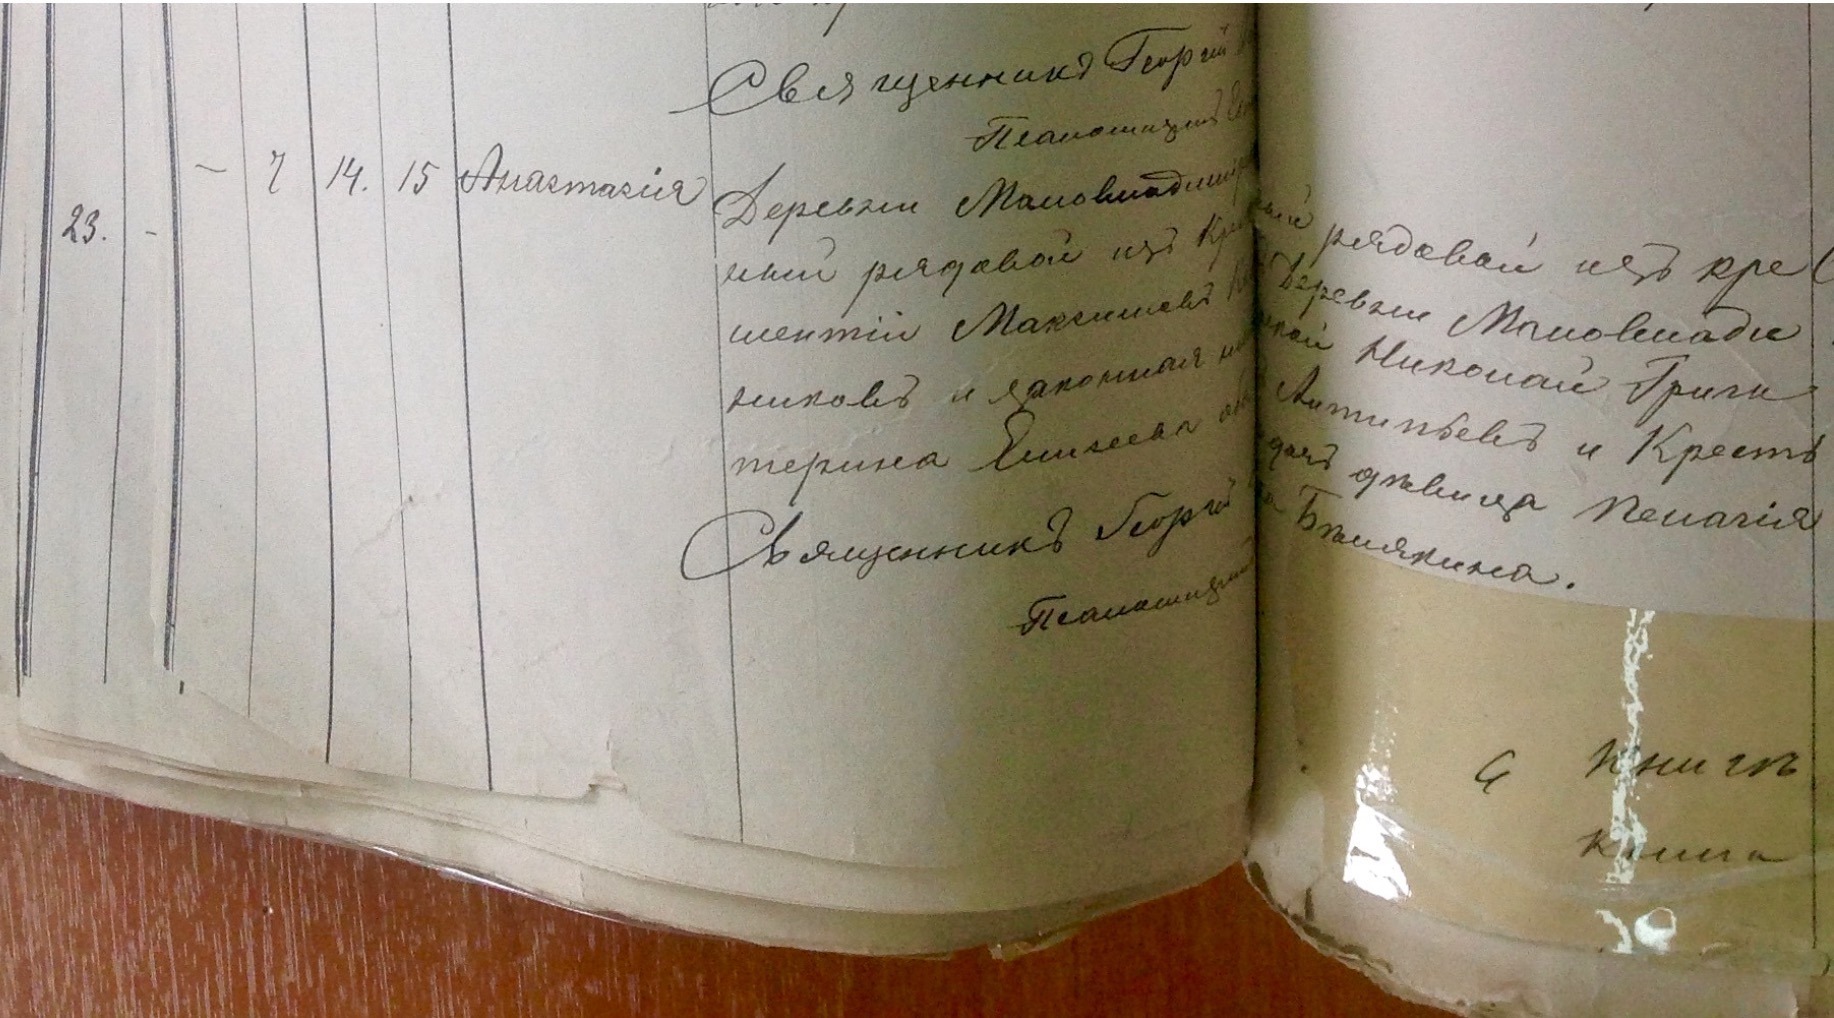 Священникъ Георгій
Псаломщикъ
23. - - 7 14. 15 Анастасія
Деревни Маловладимір
ный рядовой изъ Кре
ментій Максимовъ
никовъ и законная
терина Елисеева
Священникъ Георгій
Псаломщикъ
рядовой изъ кре
Деревни Маловлади
Николай Григи
Антипьевъ и Кресть
дочь дѣвица Пелагія
Бѣлякина.
книгѣ
книга